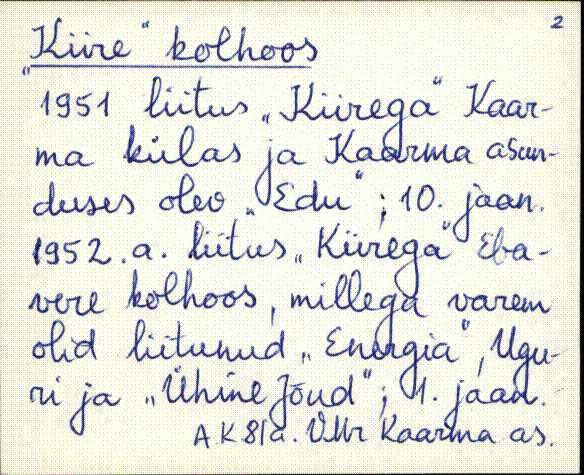 2
„Kiire“ kolhoos
1951 liitus „Kiirega“ Kaar-
ma külas ja Kaarma asun-
duses olev „Edu“; 10. jaan.
1952. a. liitus „Kiirega“ Eba-
vere kolhoos, millega varem
olid liitunud „Energia“, Ugu-
ri ja „Ühine Jõud“; 1. jaan.
AK 81a. VMr Kaarma as.